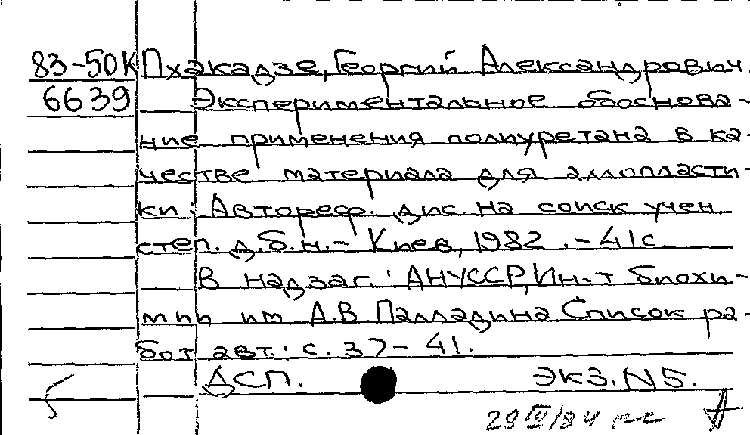 83-50К Пхакадзе, Георгий Александрович.
6639 Экспериментальное обоснова-
ние применения полиуретана в ка-
честве материала для аллопласти-
ки: Автореф. дис. на соиск учен
степ. д.б.н. - Киев, 1982. - 41с
В надзаг.: АНУССР, Ин-т биохи-
мии им А.В Палладина Список ра-
бот авт.: с. 37-41.
ДСП. ЭКЗ. N5.